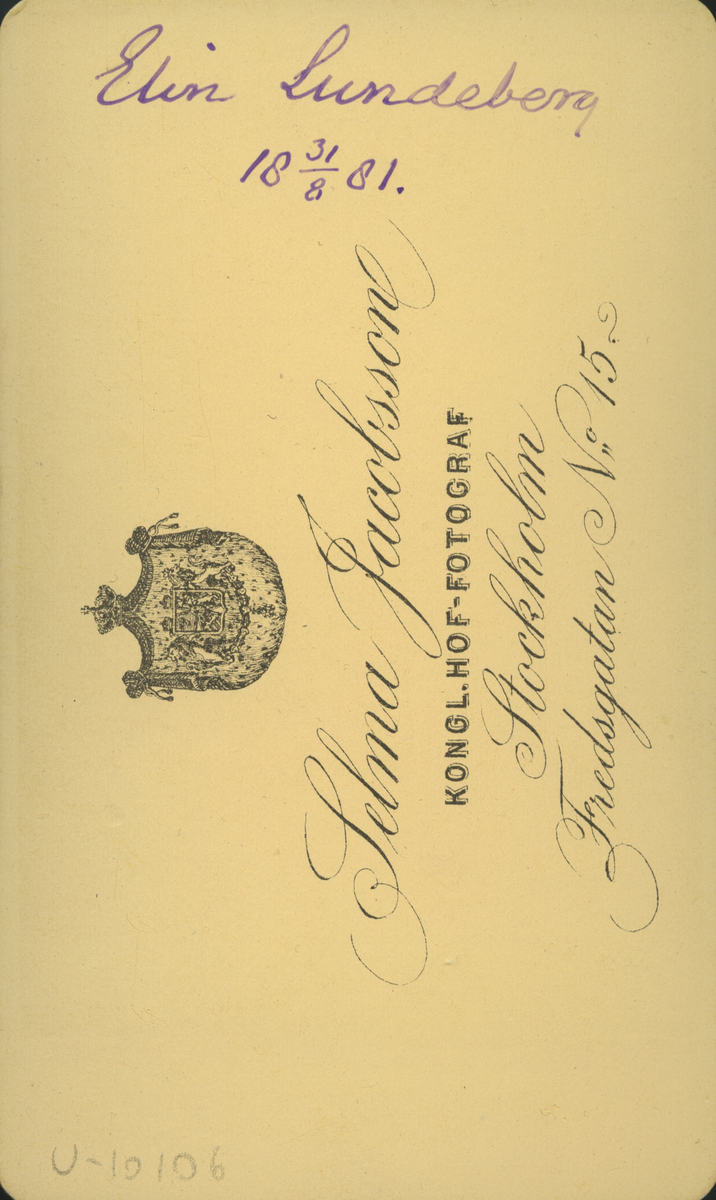 Elin Lundeberg
18 31/8 81.
Selma Jacobsson
KONGL. HOF-FOTOGRAF
Stockholm
Fredsgatan No 15.
U-10106